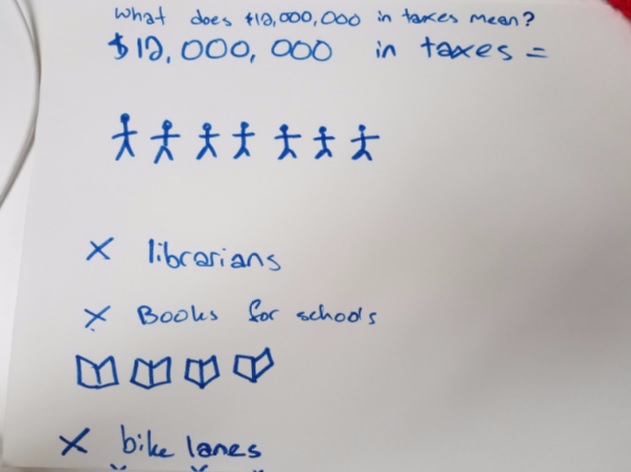 What does $12,000,000 in taxes mean?
$12,000,000 in taxes =
X librarians
X Books for schools
X bike lanes